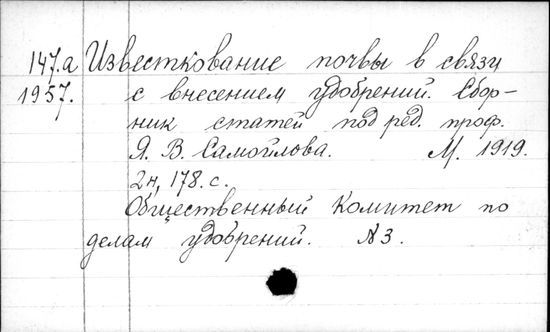 147.а Известкование почвы в связи
1957. с внесением удобрений. Сбор-
ник статей под ред. проф.
Я. В. Самойлова. М. 1919.
2н, 178. с.
Общественный Комитет по
делам удобрений. N3.